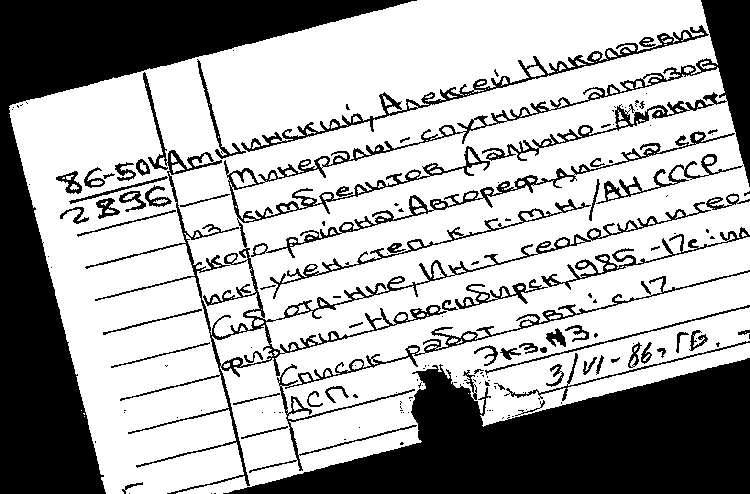 86-50К Амшинский, Алексей Николаевич
2896 Минералы-спутники алмазов
из кимберлитов Далдыно-Алакит-
ского района: Автореф. дис. на со-
иск. учен. степ. к. г.-м. н. / АН СССР
Сиб. отд-ние, Ин-т геологии и гео-
физики. - Новосибирск, 1985. - 17с.: ил
Список работ авт.: с. 17.
ДСП. Экз. №3.
3/VI-86г. ГБ.